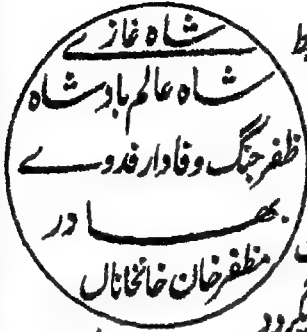 شاہ غازی
شاہ عالم بادشاہ
ظفر جنگ وفادار فدوے
بھادر
مظفر خان خانخاناں